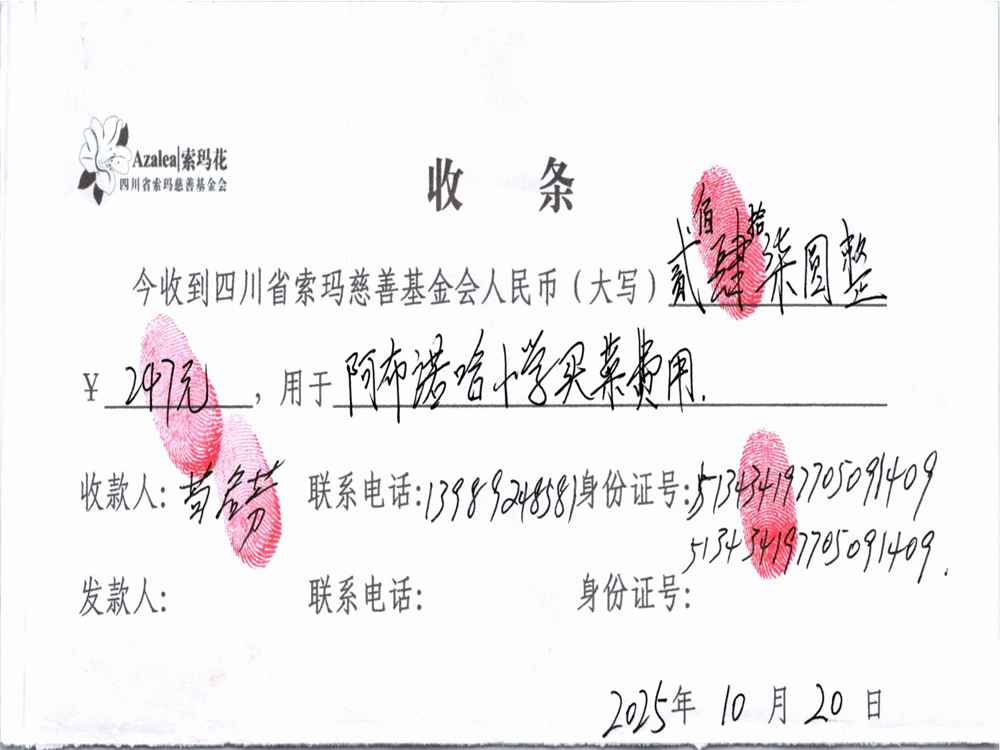 Azalea|索玛花
四川省索玛慈善基金会
收 条
今收到四川省索玛慈善基金会人民币（大写）贰佰肆拾柒圆整
¥ 247元 ，用于 阿布诺哈小学买菜费用.
收款人: 联系电话:13989248581 身份证号:513434197705091409
513434197705091409.
发款人: 联系电话: 身份证号:
2025年 10 月 20 日